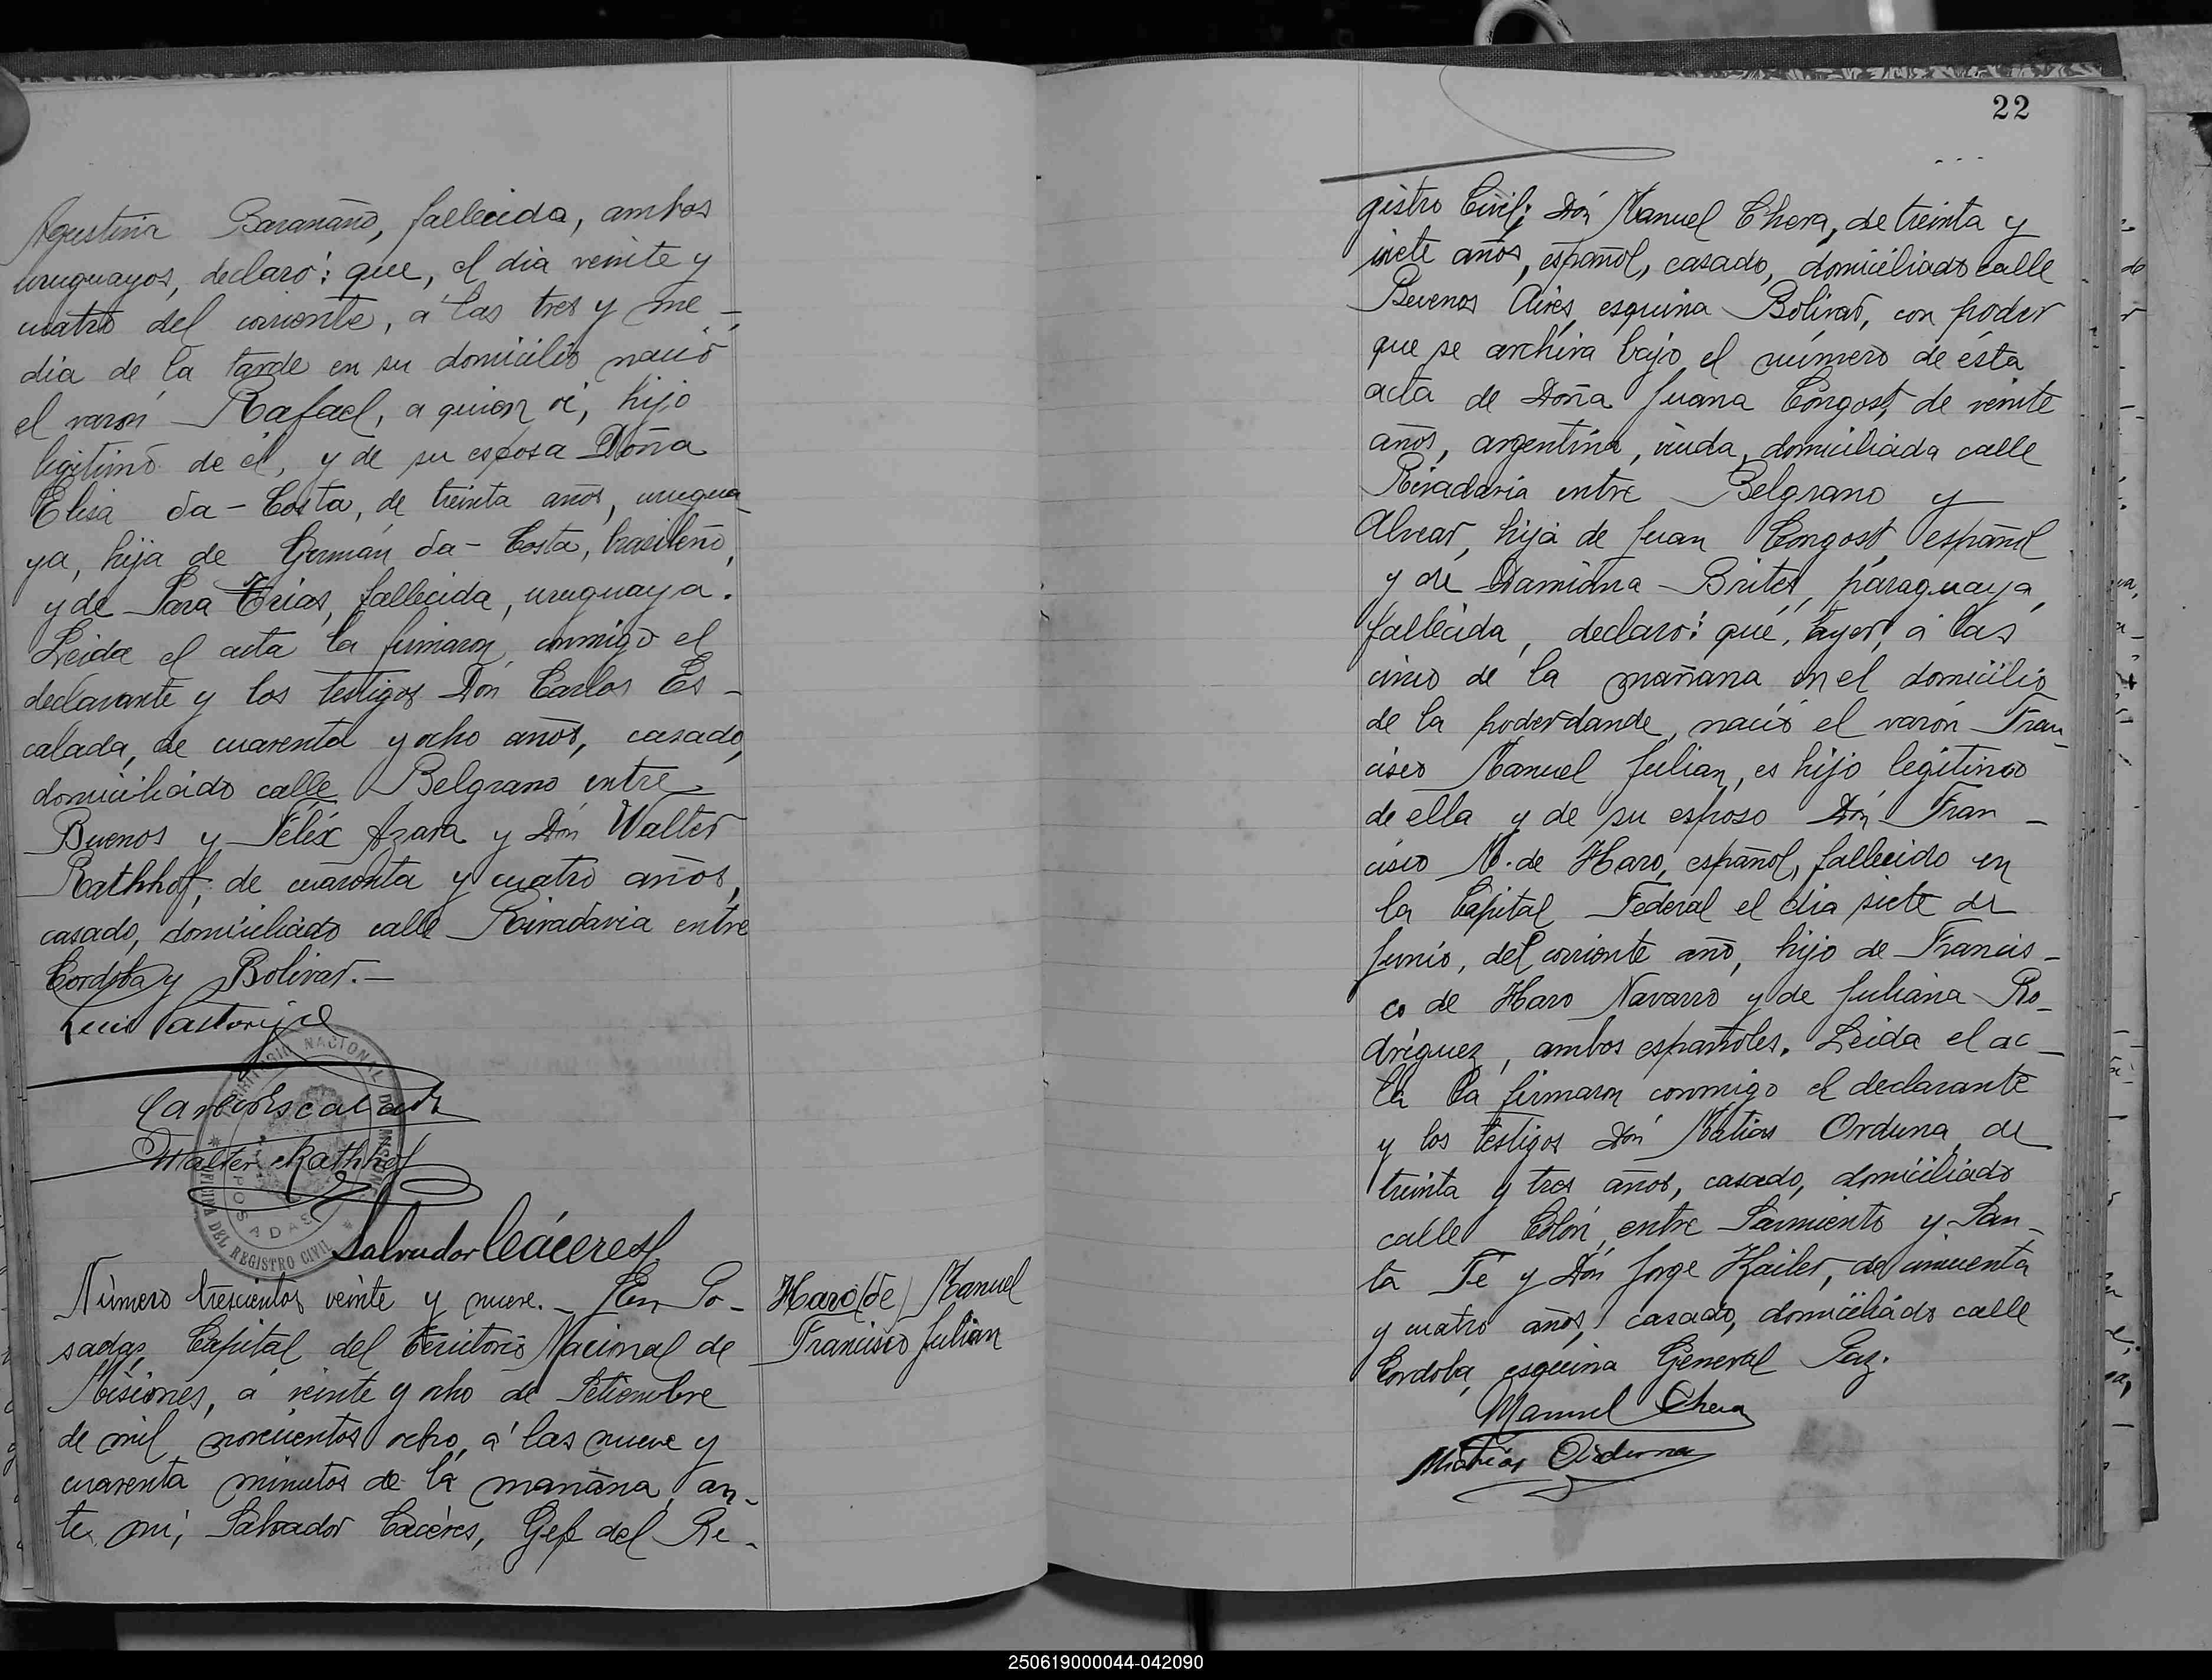 Agustina Baranãno, fallecida, ambos
uruguayos, declaró: que, el dia veinte y
cuatro del corriente, á las tres y me-
dia de la tarde en su domicilio nació
el varón Rafael, a quien ví, hijo
legitimo de él, y de su esposa Doña
Elisa da-Costa, de treinta años, urugua-
ya, hija de Germán da-Costa, brasileño,
y de Sara Trias, fallecida, uruguaya.
Leida el acta la firmaron conmigo el
declarante y los testigos Don Carlos Es-
calada, de cuarenta y ocho años, casado,
domiciliado calle Belgrano entre
Buenos y Félix Azara y Don Walter
Rathhof, de cuarenta y cuatro años,
casado, domiciliado calle Rivadavia entre
Cordoba y Bolivar.-
Luis Pastoriza
Carlos Escalada
Walter Rathhof
TERRITORIO NACIONAL DE MISIONES
OFICINA DEL REGISTRO CIVIL
POSADAS
Salvador Cáceres
Número trescientos veinte y nueve.- En Po-
sadas, Capital del Territorio Nacional de
Misiones, á veinte y ocho de Setiembre
de mil novecientos ocho, á las nueve y
cuarenta minutos de la mañana, an-
te mí, Salvador Cáceres, Gefe del Re-
Haro (de) Manuel
Francisco Julian
22
gistro Civil; Don Manuel Chera, de treinta y
siete años, español, casado, domiciliado calle
Buenos Aires esquina Bolivar, con poder
que se archiva bajo el número de ésta
acta de Doña Juana Congost, de veinte
años, argentina, viuda, domiciliada calle
Rivadavia entre Belgrano y
Alvear, hija de Juan Congost, español
y de Damiana Brites, paraguaya,
fallecida, declaró: que, ayer, á las
cinco de la mañana en el domicilio
de la poderdande, nació el varón Fran-
cisco Manuel Julian, es hijo legitimo
de ella y de su esposo Don Fran-
cisco M. de Haro, español, fallecido en
la Capital Federal el dia siete de
Junio, del corriente año, hijo de Francis-
co de Haro Navarro y de Juliana Ro-
dríguez, ambos españoles. Leida el ac-
ta la firmaron conmigo el declarante
y los testigos Don Matias Orduna de
treinta y tres años, casado, domiciliado
calle Colón entre Sarmiento y San-
ta Fé y Don Jorge Kailer, de cincuenta
y cuatro años, casado, domiciliado calle
Cordoba, esquina General Paz.
Manuel Chera
Matias Orduna
250619000044-042090